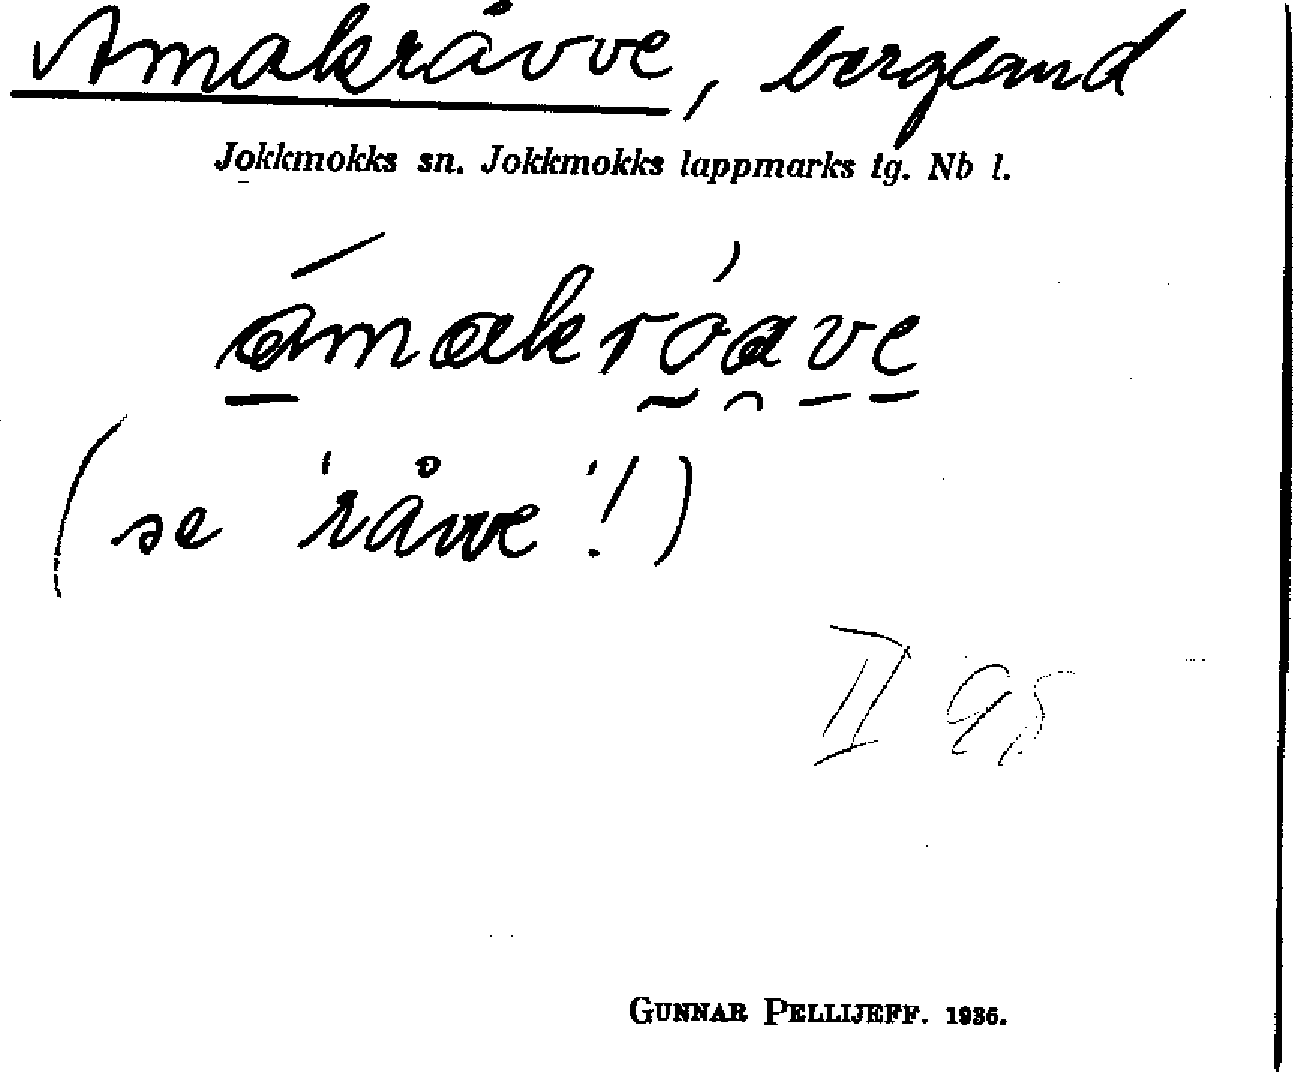 Amakråvve, bergland
Jokkmokks sn. Jokkmokks lappmarks tg. Nb l.
ámakróave
(se 'råvve'!)
II 95
GUNNAR PELLIJEFF. 1936.